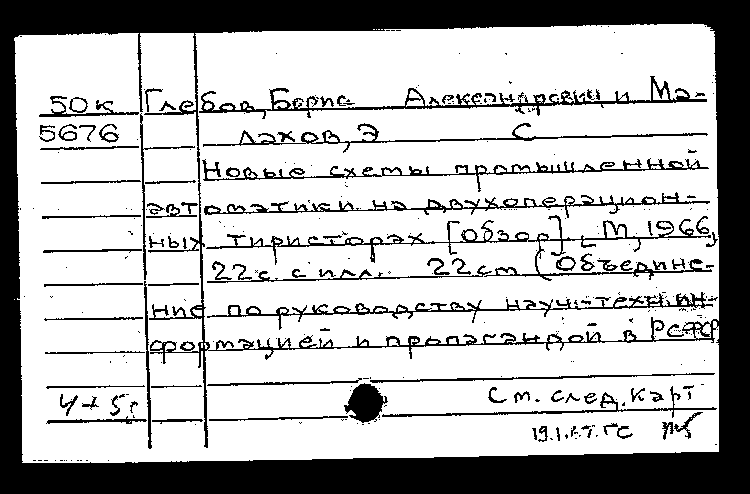 50к Глебов, Борис Александрович и Ма-
5676 лахов, Э С
Новые схемы промышленной
автоматики на двухоперацион-
ных тиристорах. [Обзор]. М, 1966,
22с. с илл. 22 см (Объедине-
ние по руководству науч.-техн. ин-
формацией и пропагандой в РСФСР
4 + 5г См. след. карт
19.1.67. ГС